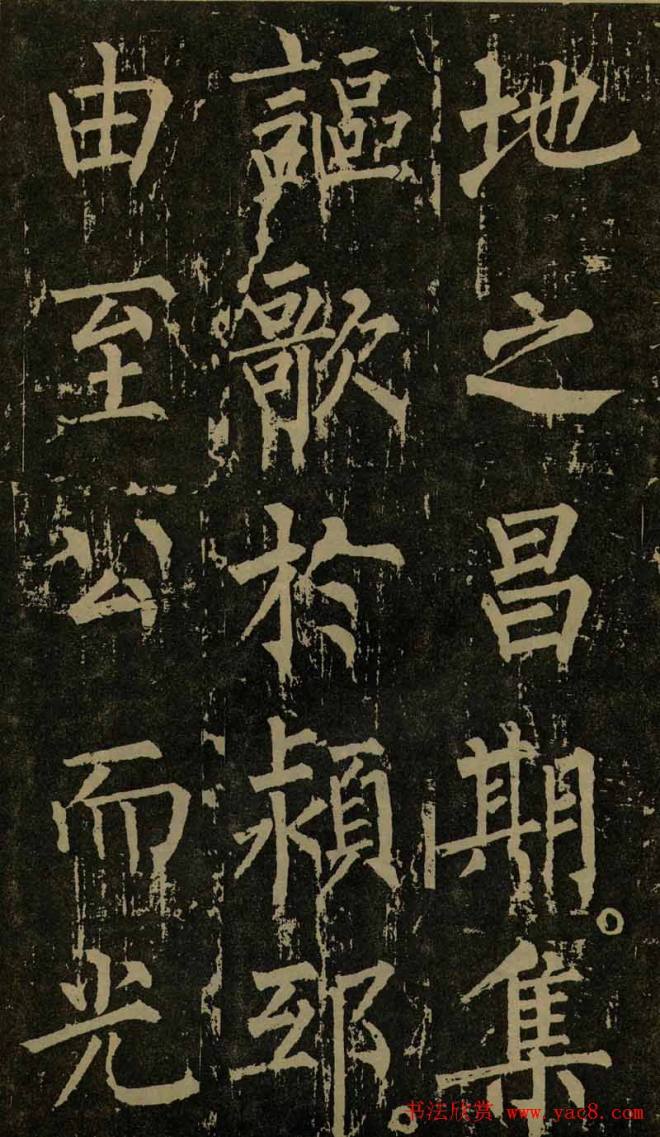 地之昌期。集
謳歌於潁邸。
由至公而光
书法欣赏 www.yac8.com